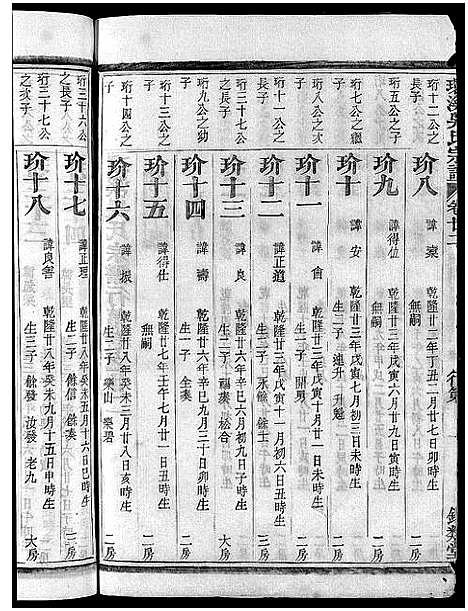 珩十二公之子
玠八 諱 乾隆廿二年丁丑二月廿八日未時生 二房
無嗣
珩五公之子
玠九 諱得位 乾隆廿三年戊寅六月廿九日寅時生 二房
無嗣
珩七公之繼子
玠十 諱安 乾隆廿三年戊寅七月初三日未時生 二房
生二子 連升 升魁
珩八公之次子
玠十一 諱會 乾隆廿三年戊寅十月廿一日未時生 二房
生一子 開
珩十一公之長子
玠十二 諱正道 乾隆廿三年戊寅十一月初六日丑時生 三房
生二子 永餘 餘士
珩三十七公之長子
玠十三 乾隆廿六年辛巳六月初九日子時生 大房
生二子 福湊 松合
珩九公之幼子
玠十四 諱壽 乾隆廿六年辛巳九月三十日卯時生 二房
生一子 全湊
玠十五 諱得仕 乾隆廿七年壬午七月廿一日卯時生 二房
無嗣
珩十四公之子
玠十六 諱振 乾隆廿八年癸未三月廿八日亥時生 二房
生二子 樂山 樂碧
珩三十六公之長子
玠十七 諱正理 乾隆廿八年癸未五月十六日巳時生 三房
生二子 餘信 餘湊
珩三十七公之次子
玠十八 諱良善 乾隆廿八年癸未九月十五日申時生 大房
生三子 餘發 汝發 老九
氏宗譜 卷廿二 行第 一